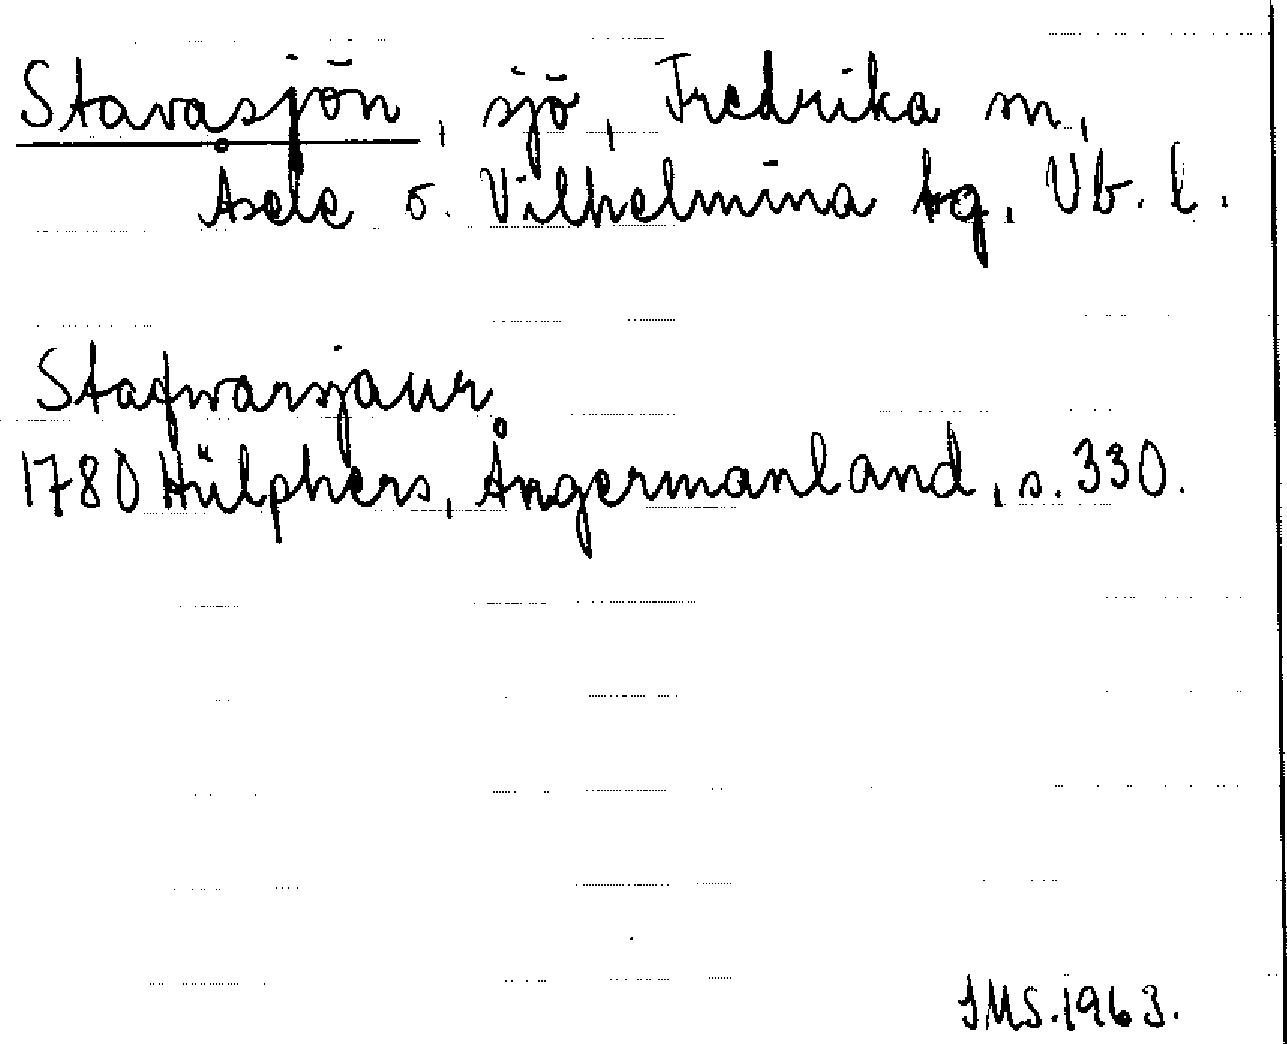 Stavasjön, sjö, Fredrika sn,
Åsele o. Vilhelmina tg, Vb. l.
Stafwarsjaur
1780 Hülphers, Ångermanland, s. 330.
JMS. 1963.